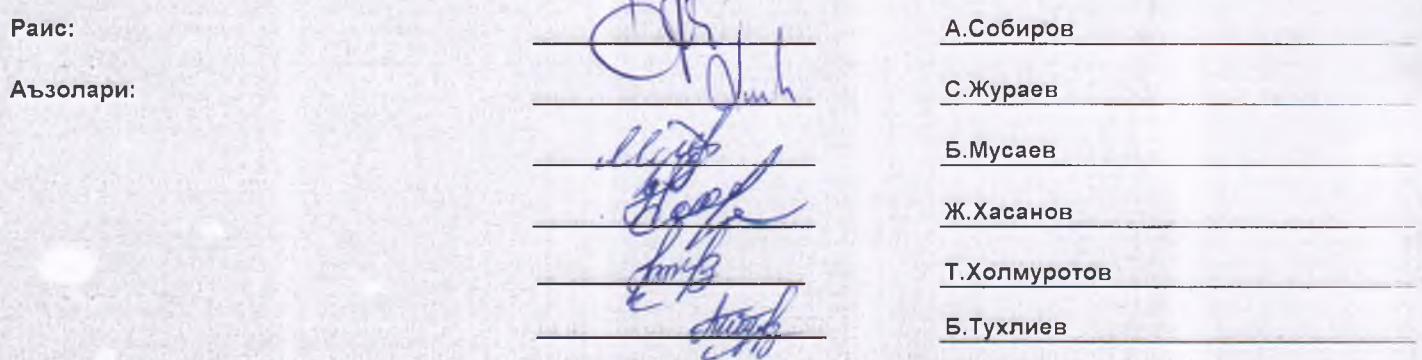 Раис: А.Собиров
Аъзолари: С.Жураев
Б.Мусаев
Ж.Хасанов
Т.Холмуротов
Б.Тухлиев